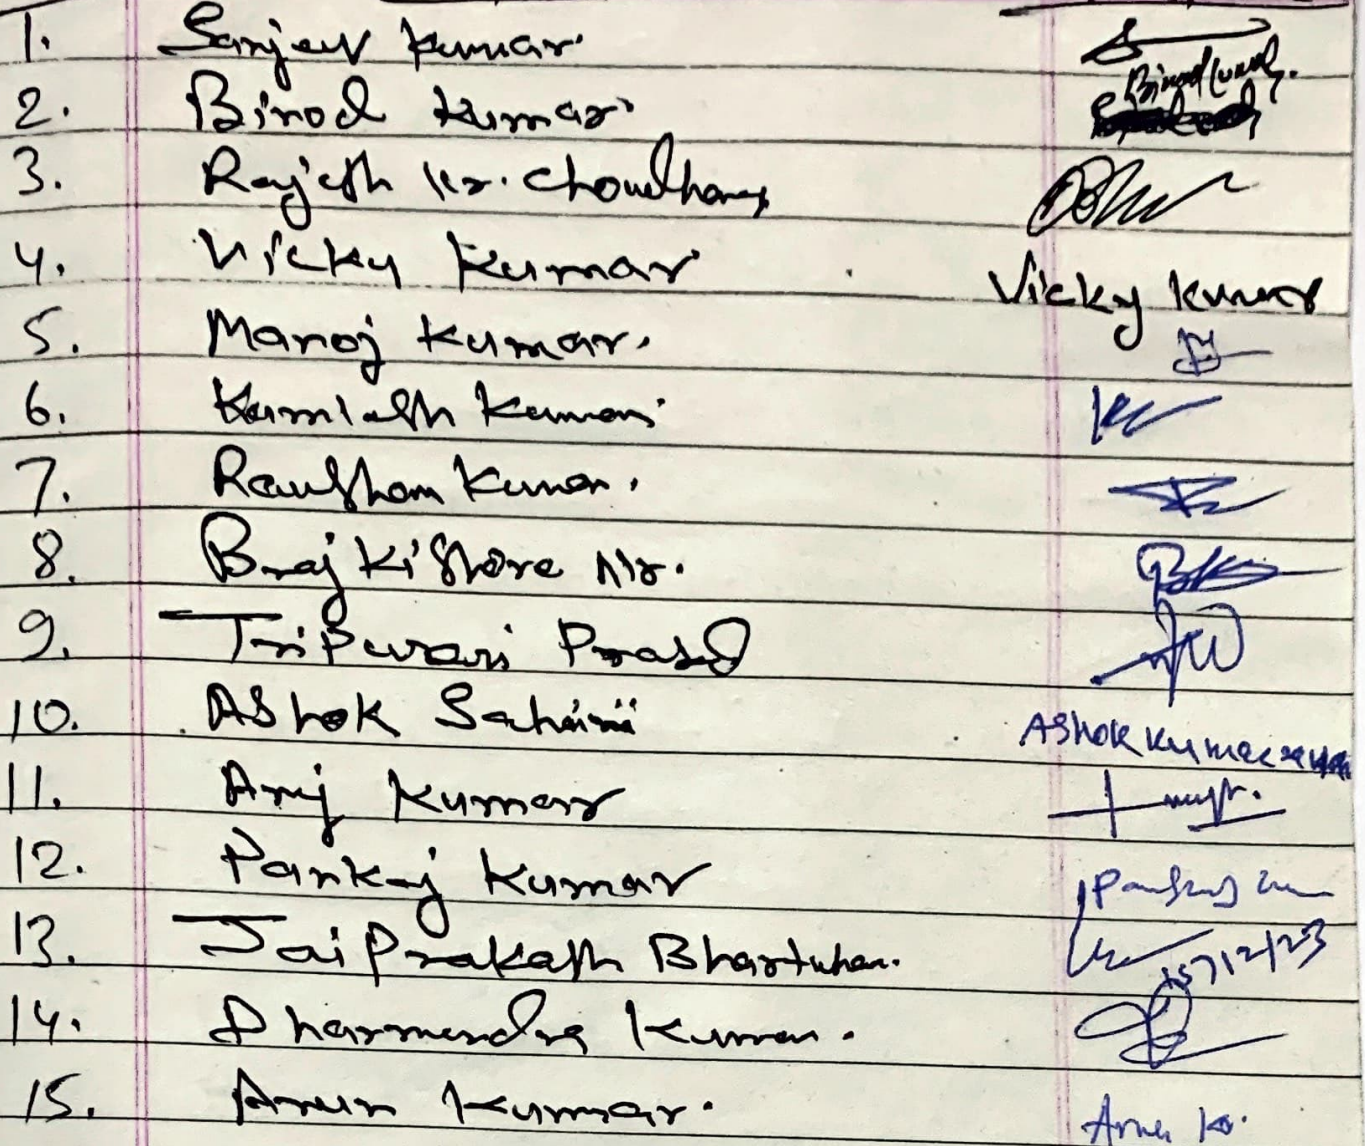 1. Sanjeev Kumar
2. Binod Kumar Binod Kumar
3. Rajesh Kr. Choudhary
4. Vicky Kumar Vicky Kumar
5. Manoj Kumar.
6. Kamlesh Kumar
7. Raushan Kumar.
8. Braj Kishore Kr.
9. Tripurari Prasad
10. Ashok Sahani Ashok Kumar
11. Kumar
12. Pankaj Kumar Pankaj
13. Jai Prakash 15/12/23
14. Dharmendra Kumar.
15. Arun Kumar. Arun Kr.